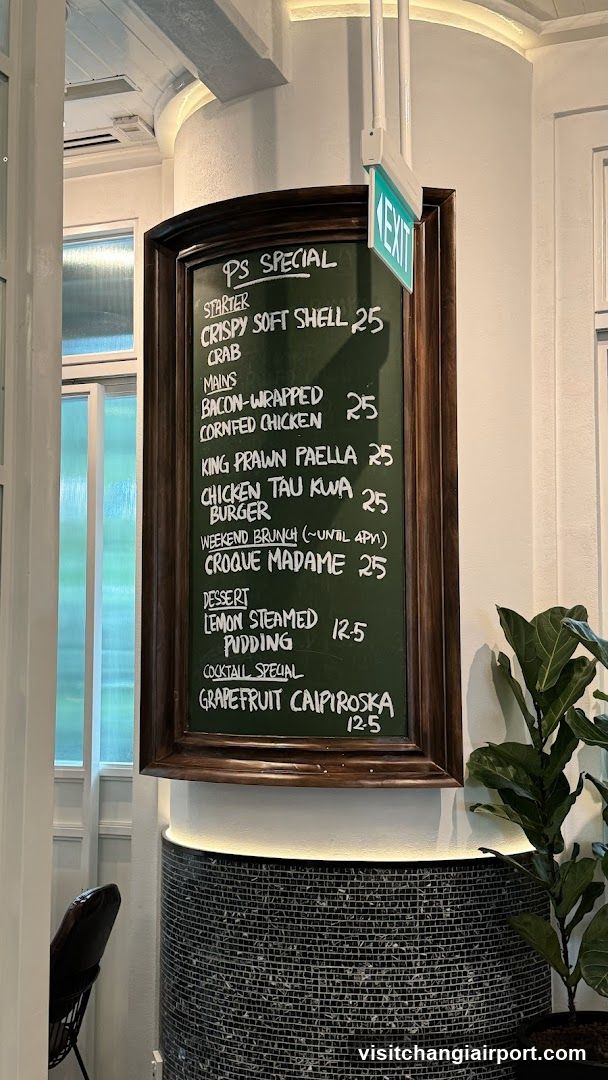 EXIT
PS SPECIAL
STARTER
CRISPY SOFT SHELL 25
CRAB
MAINS
BACON-WRAPPED 25
CORNFED CHICKEN
KING PRAWN PAELLA 25
CHICKEN TAU KWA 25
BURGER
WEEKEND BRUNCH (~UNTIL 4PM)
CROQUE MADAME 25
DESSERT
LEMON STEAMED 12.5
PUDDING
COCKTAIL SPECIAL
GRAPEFRUIT CAIPIROSKA
12.5
visitchangiairport.com